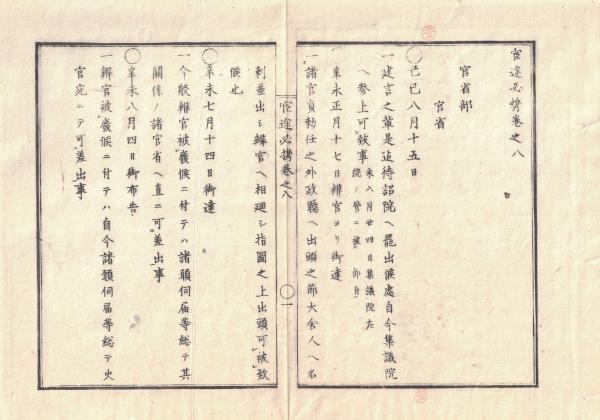 官途必携巻之八
官省部
官省
◯己巳八月十五日
一建言之輩是迄待詔院ヘ罷出候處自今集議院
ヘ参上可致事 未八月廿四日集議院左院ノ管ニ被 仰付
◯辛未正月十七日辨官ヨリ御達
一諸官員勅任之外政廳ヘ出頭之節大舎人ヘ名
官途必携巻之八 ◯一
刺差出シ辨官ヘ相廻シ指圖之上出頭可被致
候也
◯辛未七月十四日御達
一今般辨官被廢候ニ付テハ諸願伺届等総テ其
關係ノ諸官省ヘ直ニ可差出事
◯辛未八月四日御布告
一辨官被廢候ニ付テハ自今諸願伺届等総テ史
官宛ニテ可差出事